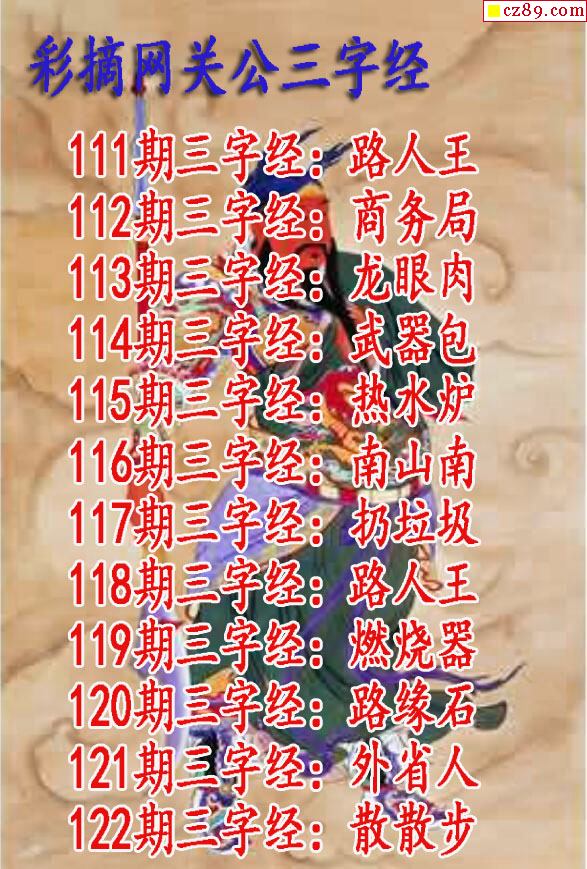 cz89.com
彩摘网关公三字经
111期三字经：路人王
112期三字经：商务局
113期三字经：龙眼肉
114期三字经：武器包
115期三字经：热水炉
116期三字经：南山南
117期三字经：扔垃圾
118期三字经：路人王
119期三字经：燃烧器
120期三字经：路缘石
121期三字经：外省人
122期三字经：散散步